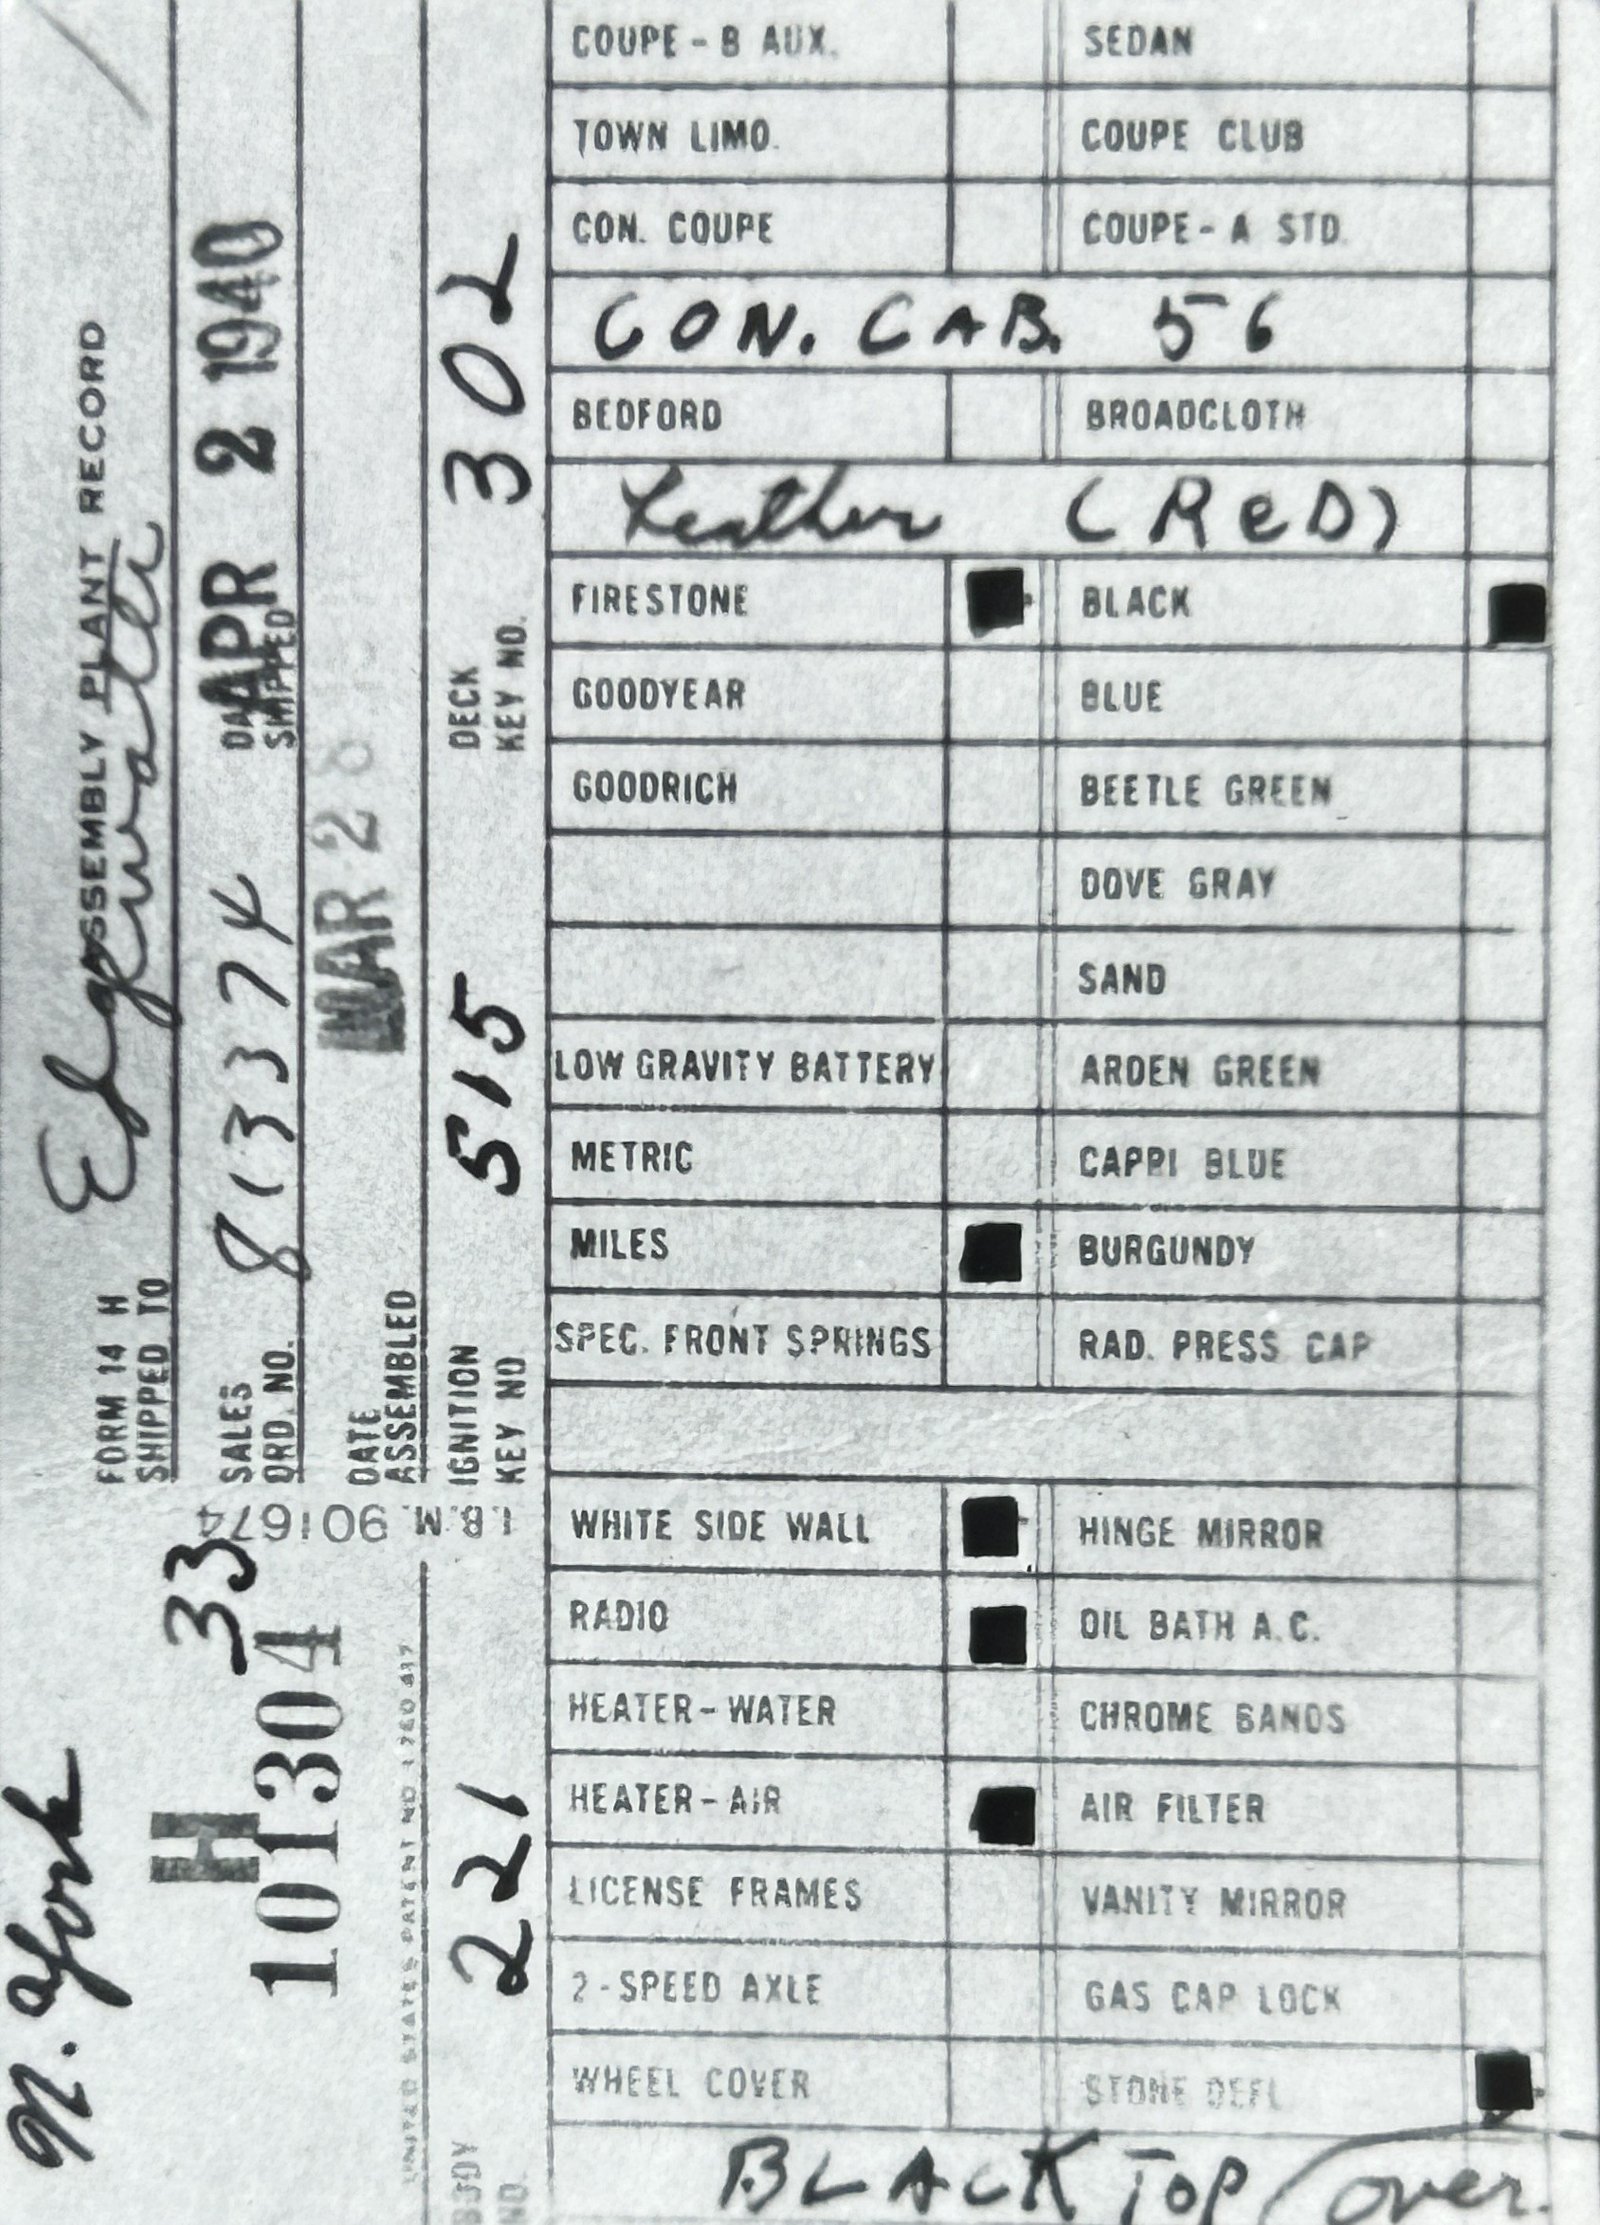 ASSEMBLY PLANT RECORD
FORM 14 H
SHIPPED TO
N. York
SALES ORD. NO. 813374
DATE SHIPPED APR 2 1940
DATE ASSEMBLED MAR 28
IGNITION KEY NO. 515
DECK KEY NO. 302
I.B.M. 901674
33
H
101304
UNITED STATES PATENT NO 1 780 417
BODY NO. 221
COUPE - B AUX. SEDAN
TOWN LIMO. COUPE CLUB
CON. COUPE COUPE - A STD.
CON. CAB. 56
BEDFORD BROADCLOTH
Leather (ReD)
FIRESTONE BLACK
GOODYEAR BLUE
GOODRICH BEETLE GREEN
DOVE GRAY
SAND
LOW GRAVITY BATTERY ARDEN GREEN
METRIC CAPPI BLUE
MILES BURGUNDY
SPEC. FRONT SPRINGS RAD. PRESS CAP
WHITE SIDE WALL HINGE MIRROR
RADIO OIL BATH A.C.
HEATER - WATER CHROME BANDS
HEATER - AIR AIR FILTER
LICENSE FRAMES VANITY MIRROR
2 - SPEED AXLE GAS CAP LOCK
WHEEL COVER STONE DEFL
BLACK TOP over.